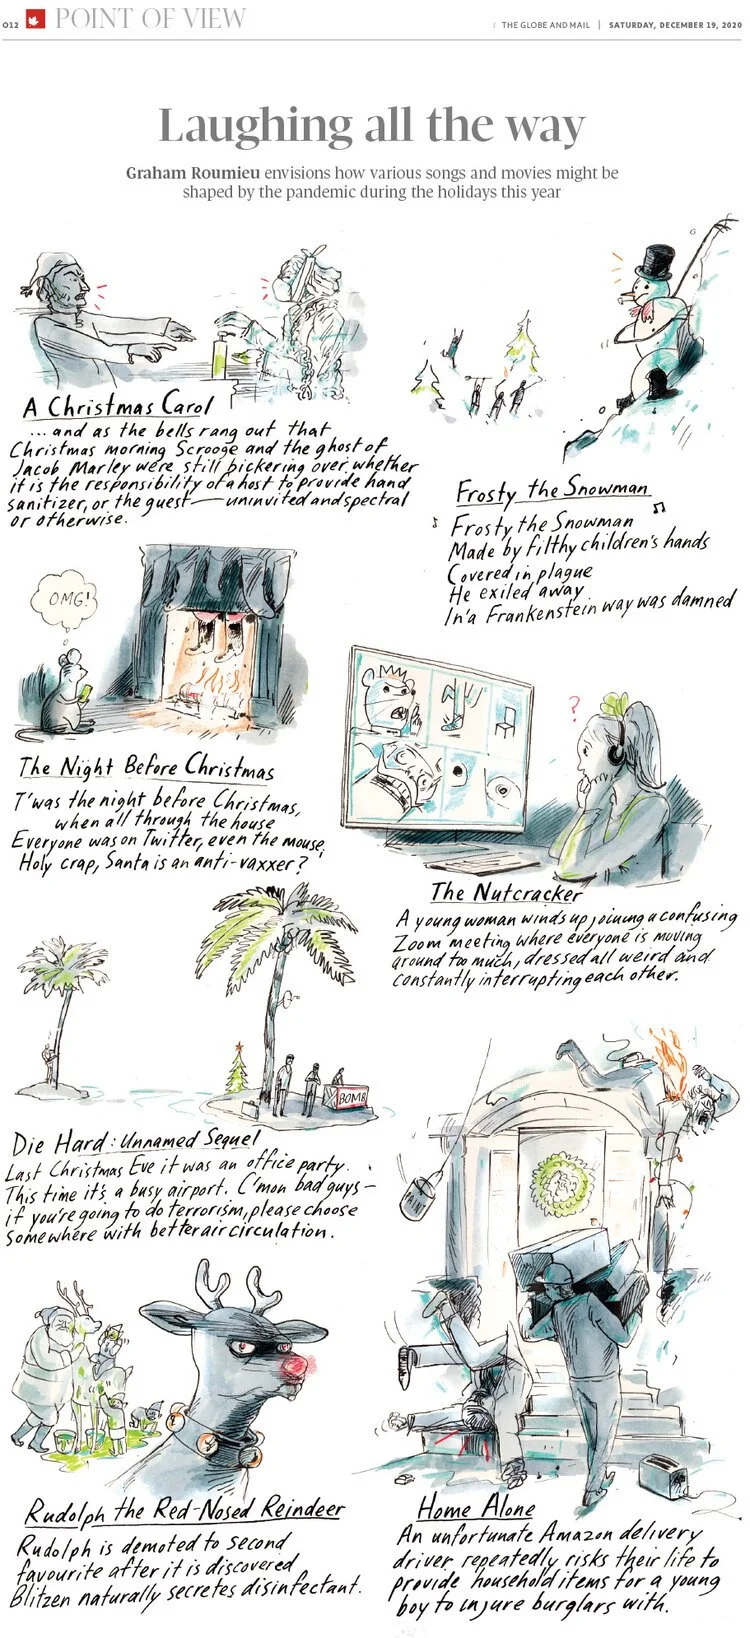 O12
POINT OF VIEW
THE GLOBE AND MAIL | SATURDAY, DECEMBER 19, 2020
Laughing all the way
Graham Roumieu envisions how various songs and movies might be
shaped by the pandemic during the holidays this year
A Christmas Carol
... and as the bells rang out that
Christmas morning Scrooge and the ghost of
Jacob Marley were still bickering over whether
it is the responsibility of a host to provide hand
sanitizer, or the guest — uninvited and spectral
or otherwise.
Frosty the Snowman
Frosty the Snowman
Made by filthy children's hands
Covered in plague
He exiled away
In a Frankenstein way was damned
OMG!
The Night Before Christmas
T'was the night before Christmas,
when all through the house
Everyone was on Twitter, even the mouse,
Holy crap, Santa is an anti-vaxxer?
?
The Nutcracker
A young woman winds up joining a confusing
Zoom meeting where everyone is moving
around too much, dressed all weird and
constantly interrupting each other.
BOMB
Die Hard: Unnamed Sequel
Last Christmas Eve it was an office party.
This time it's a busy airport. C'mon bad guys —
if you're going to do terrorism, please choose
somewhere with better air circulation.
PAINT
Rudolph the Red-Nosed Reindeer
Rudolph is demoted to second
favourite after it is discovered
Blitzen naturally secretes disinfectant.
Home Alone
An unfortunate Amazon delivery
driver repeatedly risks their life to
provide household items for a young
boy to injure burglars with.